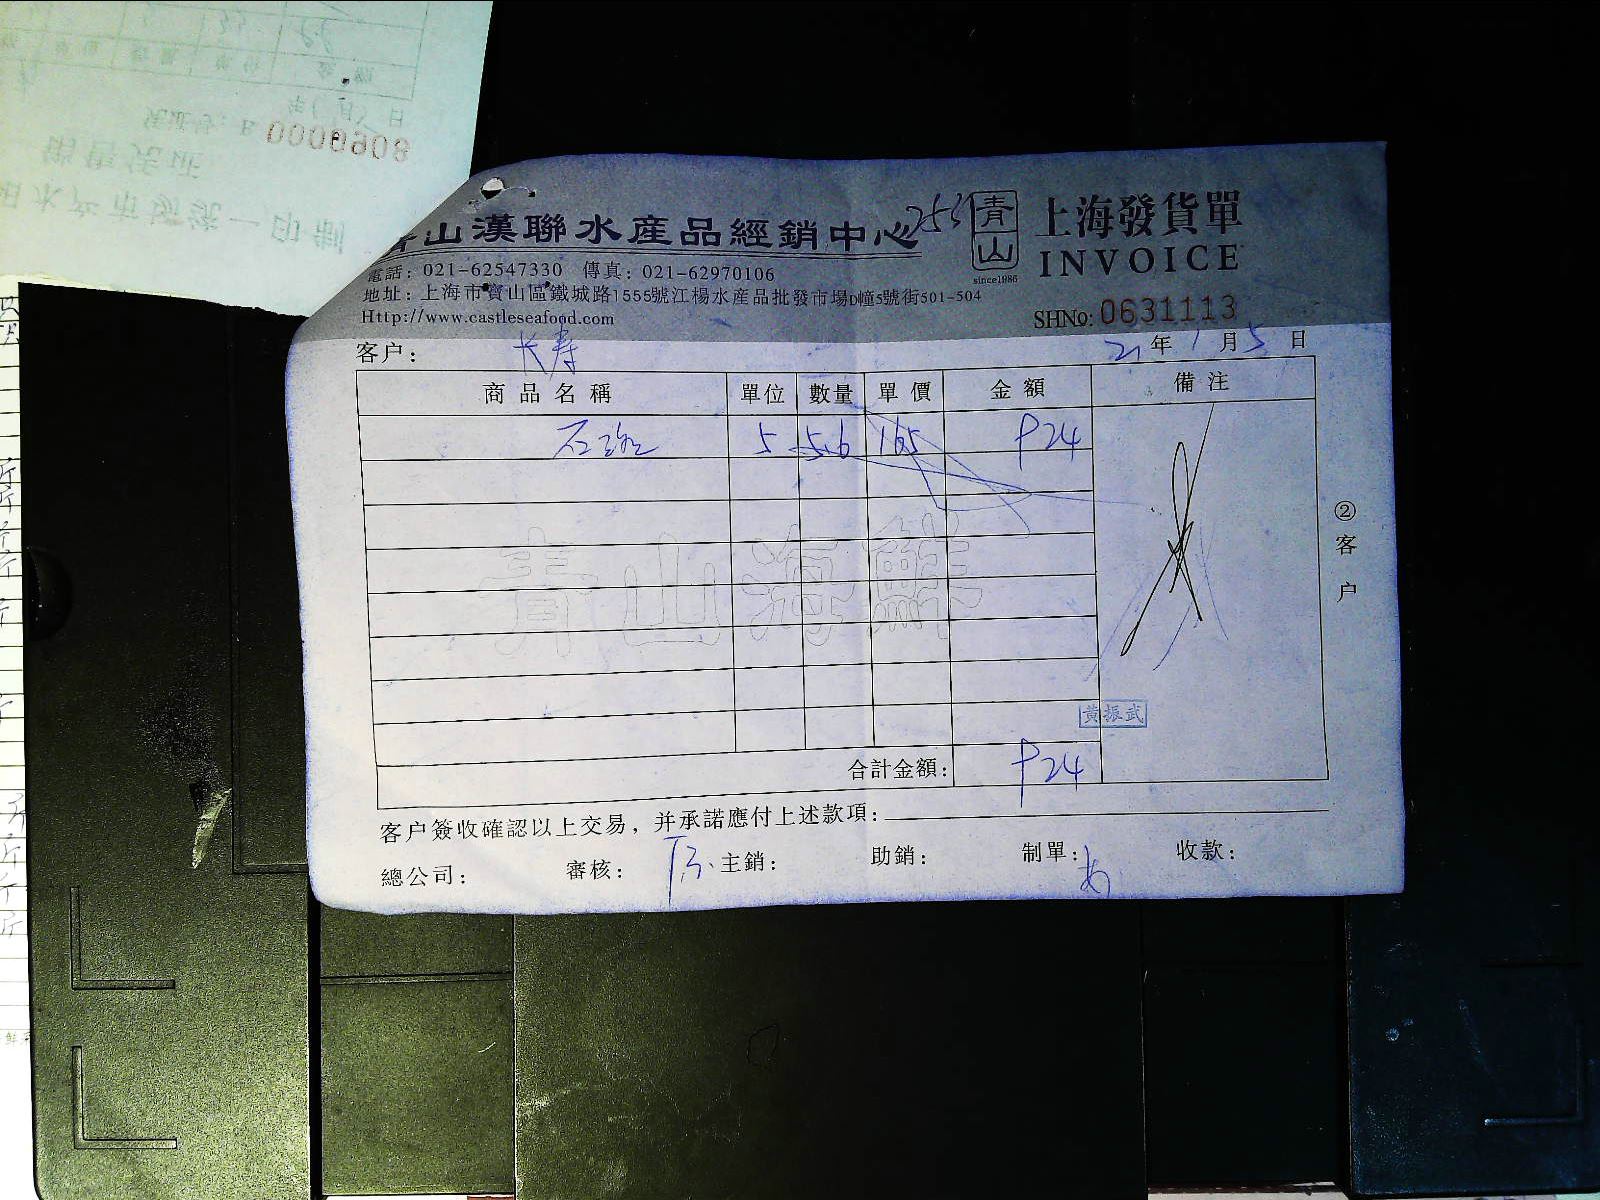 青山漢聯水產品經銷中心
253
青山
since1986
上海發貨單
INVOICE
電話：021-62547330 傳真：021-62970106
地址：上海市寶山區鐵城路1555號江楊水產品批發市場D幢5號街501-504
Http://www.castleseafood.com
SHNo: 0631113
客户： 长寿
21 年 1 月 5 日
商品名稱 單位 數量 單價 金額 備注
石斑 5 5.6 165 924
青山海鮮
黃振武
合計金額： 924
②客户
客户簽收確認以上交易，并承諾應付上述款項：
總公司： 審核： 主銷： 助銷： 制單： 收款：